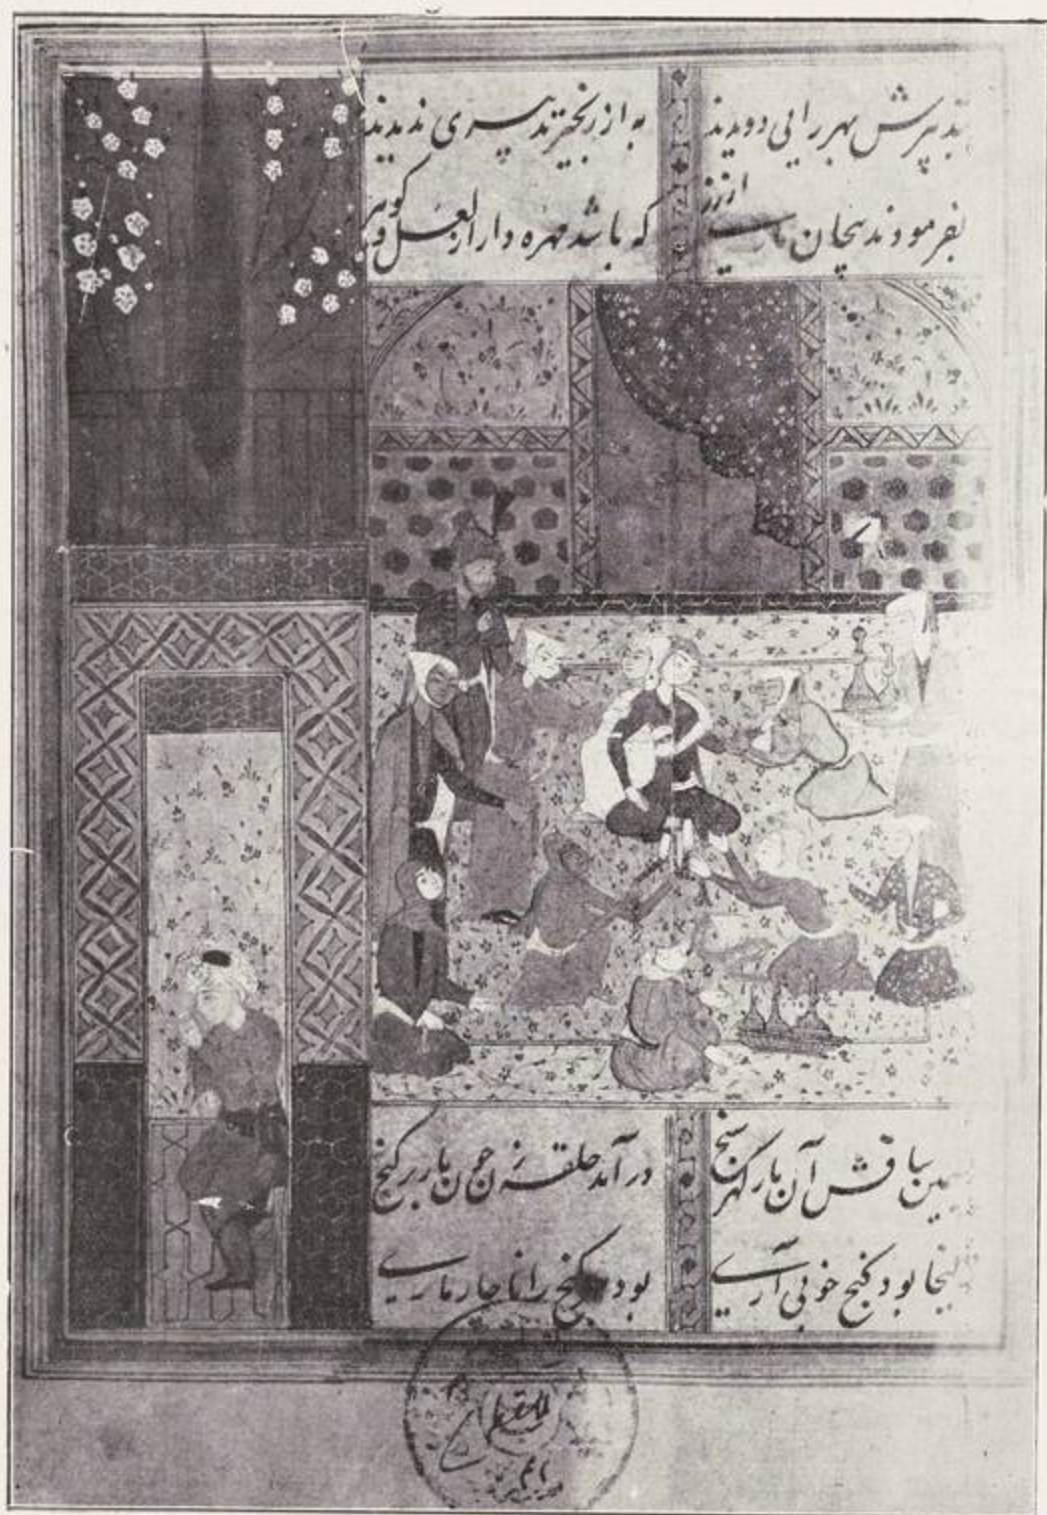 بتدبیرش بهر رایی دویدند به از زنجیر تدبیری ندیدند
بفرمودند پیچان ماری از زر که باشد مهره دار از لعل و گوهر
سیمین ساقش آن مار گهر سنج در آمد حلقه زن چون مار بر گنج
زلیخا بود گنج خوبی آری بود گنج را ناچار ماری